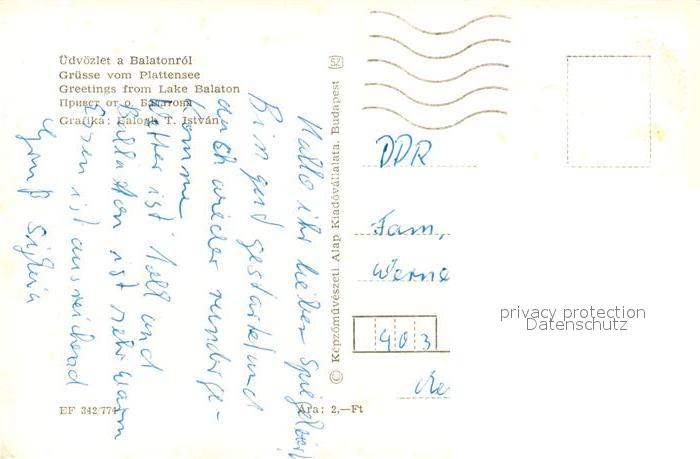 Üdvözlet a Balatonról
Grüsse vom Plattensee
Greetings from Lake Balaton
Привет от о. Балатона
Grafika: Balogh T. István
Hallo ihr lieben
Bin gut gestartet und
auch wieder runterge-
komme
Wetter ist toll und
Ballaton ist sehr warm
Essen ist ausreichend
Gruß Silvia
EF 342/774
Ára: 2,—Ft
© Képzőművészeti Alap Kiadóvállalata, Budapest
SZ
DDR
Fam.
Werne
403
privacy protection
Datenschutz